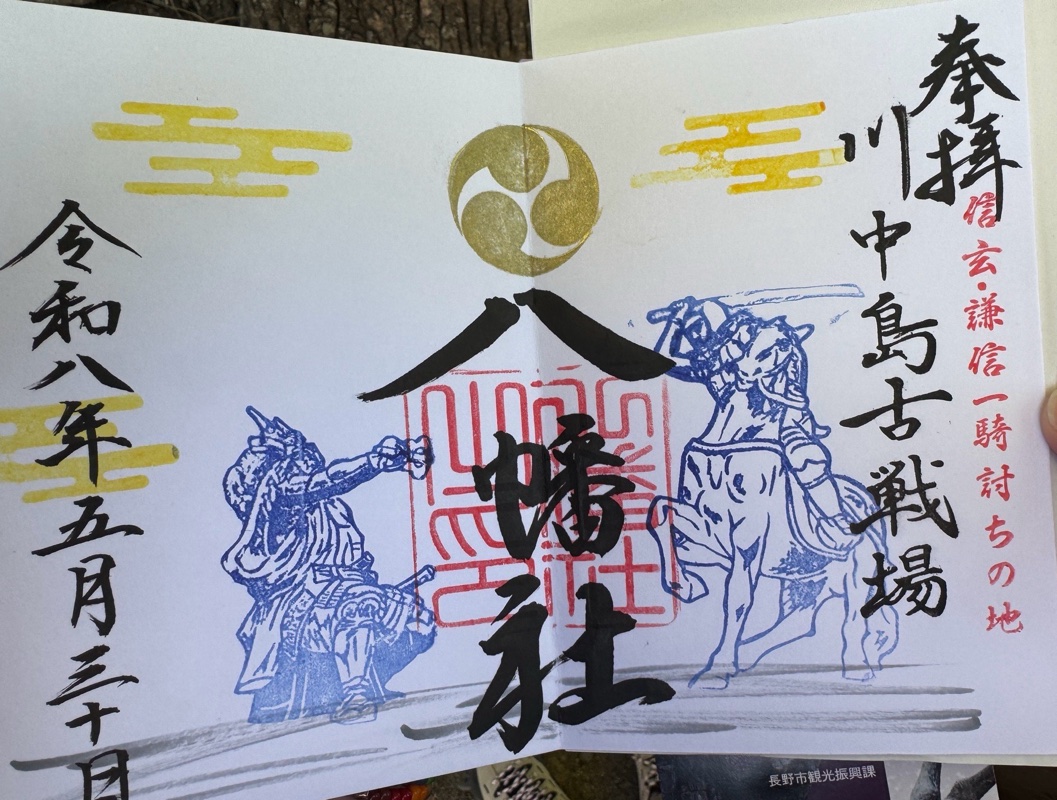 奉拝
信玄・謙信一騎討ちの地
川中島古戦場
八幡社
令和八年五月三十日
長野市観光振興課